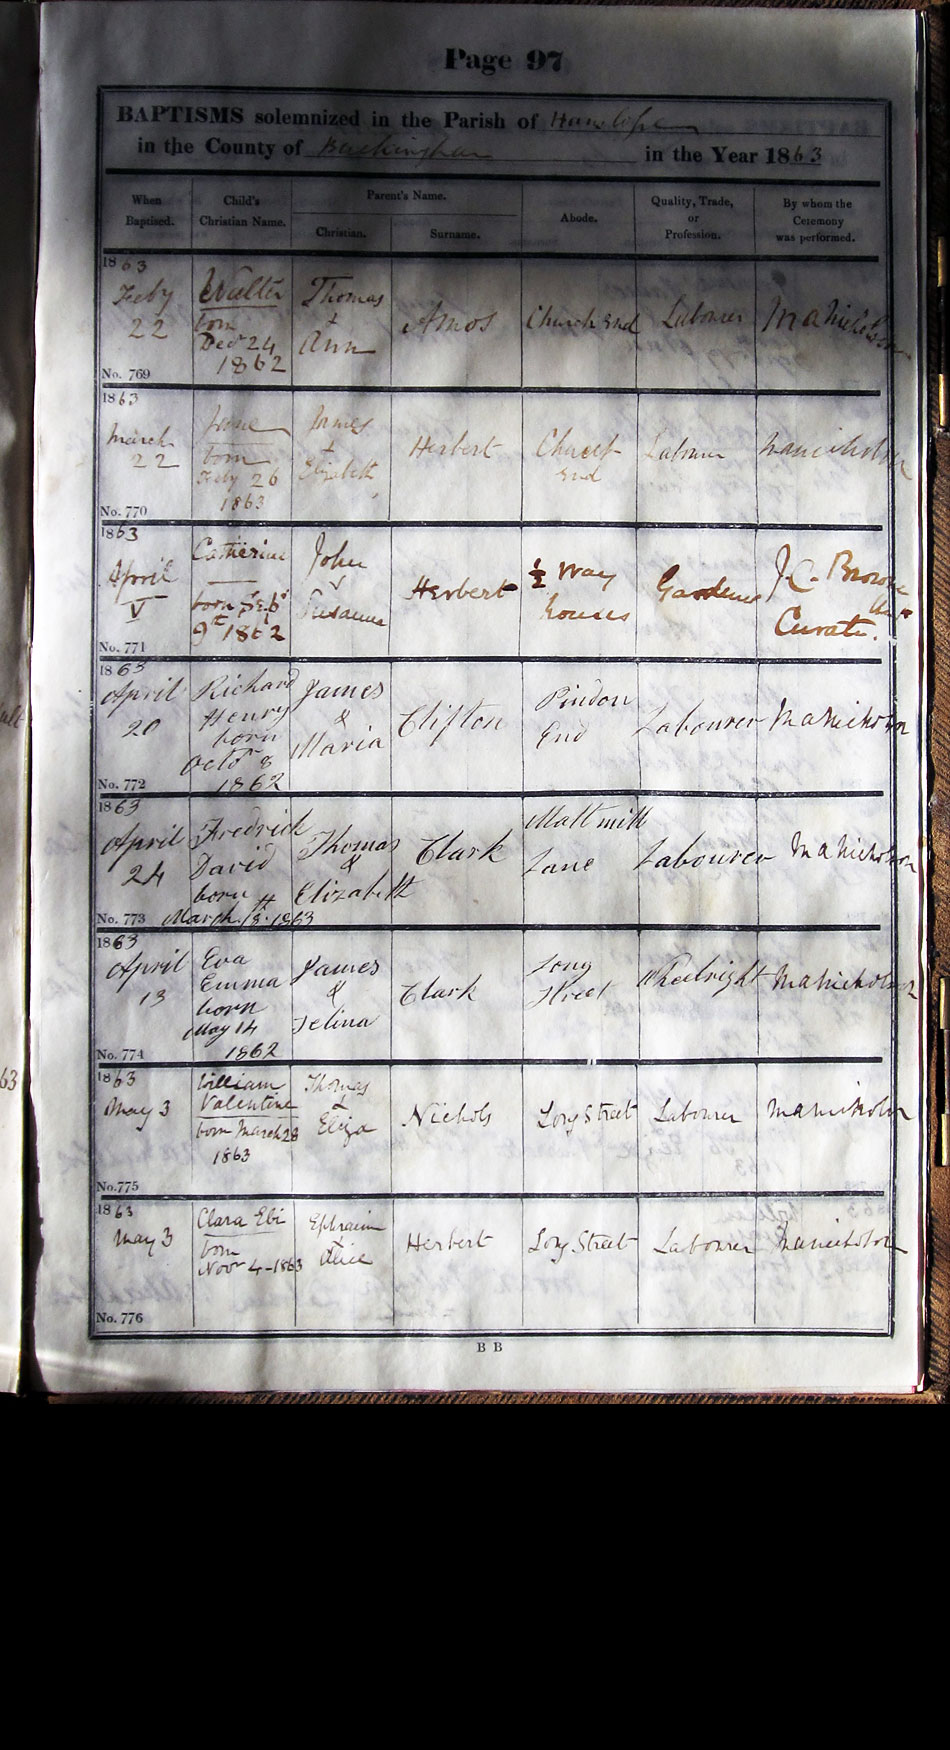 Page 97
BAPTISMS solemnized in the Parish of Hanslope
in the County of Buckingham in the Year 1863
When Baptised. Child's Christian Name. Parent's Name. Christian. Surname. Abode. Quality, Trade, or Profession. By whom the Ceremony was performed.
1863
Feby 22
Walter
born
Decr 24
1862
Thomas
&
Ann
Amos
Church End
Labourer
No. 769
1863
March 22
born
Feby 26
1863
James
&
Elizabeth
Herbert
Church
End
Labourer
No. 770
1863
April
V
Catherine
born Sepbr
9th 1862
John
Susanna
Herbert
½ Way
houses
Gardener
J. C. Browne
Curate.
No. 771
1863
April
20
Richard
Henry
born
Octbr 8
1862
James
&
Maria
Clifton
Pindon
End
Labourer
M A Nicholson
No. 772
1863
April
24
Fredrick
David
born
March 18th 1863
Thomas
&
Elizabeth
Clark
Malt mill
Lane
Labourer
M A Nicholson
No. 773
1863
April
13
Eva
Emma
born
May 14
1862
James
&
Selina
Clark
Long
Street
Wheelright
M A Nicholson
No. 774
1863
May 3
William
Valentine
born March 28
1863
Thomas
&
Eliza
Nichols
Long Street
Labourer
M A Nicholson
No. 775
1863
May 3
Clara Ebi
born
Novr 4-1863
Ephraim
&
Alice
Herbert
Long Street
Labourer
M A Nicholson
No. 776
B B
63